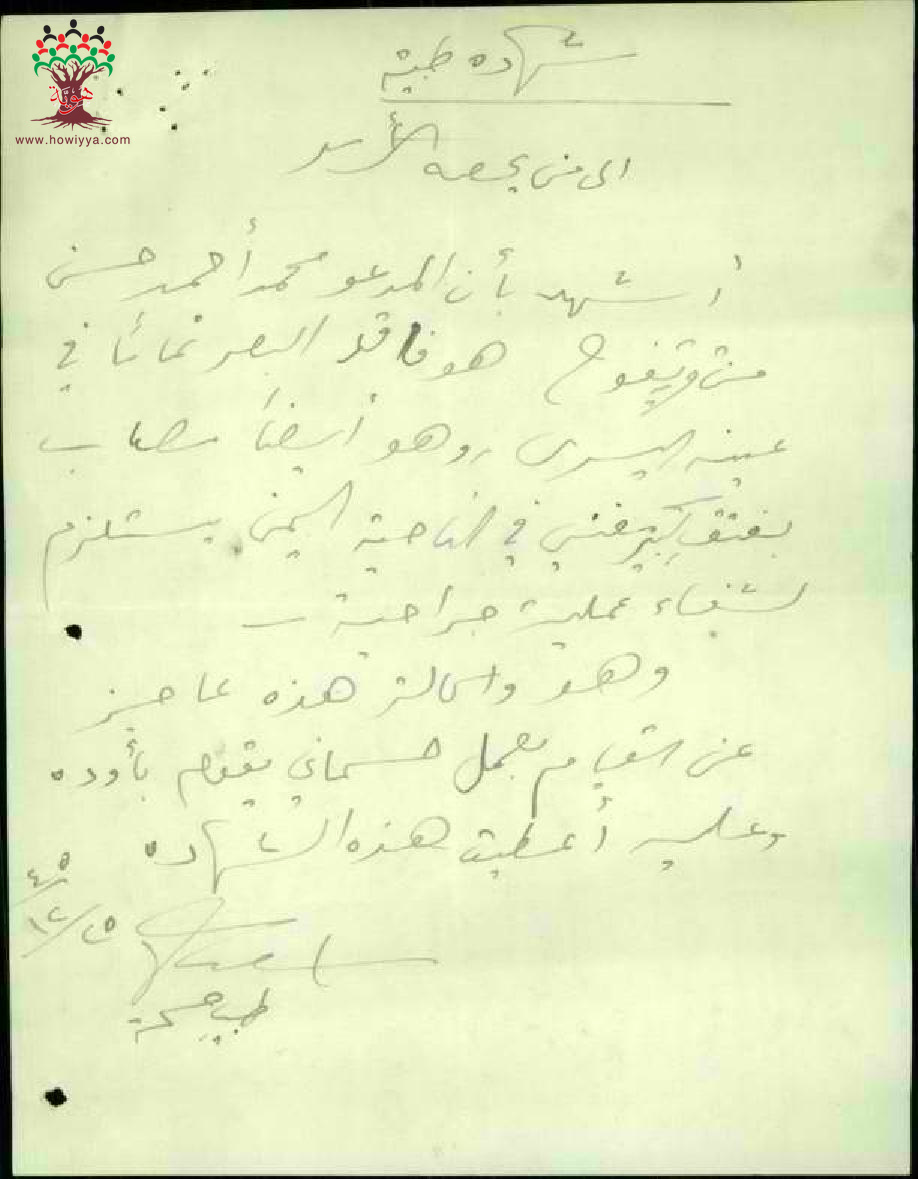 هوية
www.howiyya.com
شهاده طبية
الى من يهمه الأمر
أشهد بأن المدعو محمد أحمد حسن
من هو فاقد البصر تمامًا في
عينه اليسرى ، وهو أيضاً مصاب
بفتق كبير في الناحية اليمنى يستلزم
لشفاءه عملية جراحية -
وهو والحالة هذه عاجز
عن القيام بعمل جسماني يقوم بأوده
وعليه أعطيت هذه الشهاده
طبيب صحة